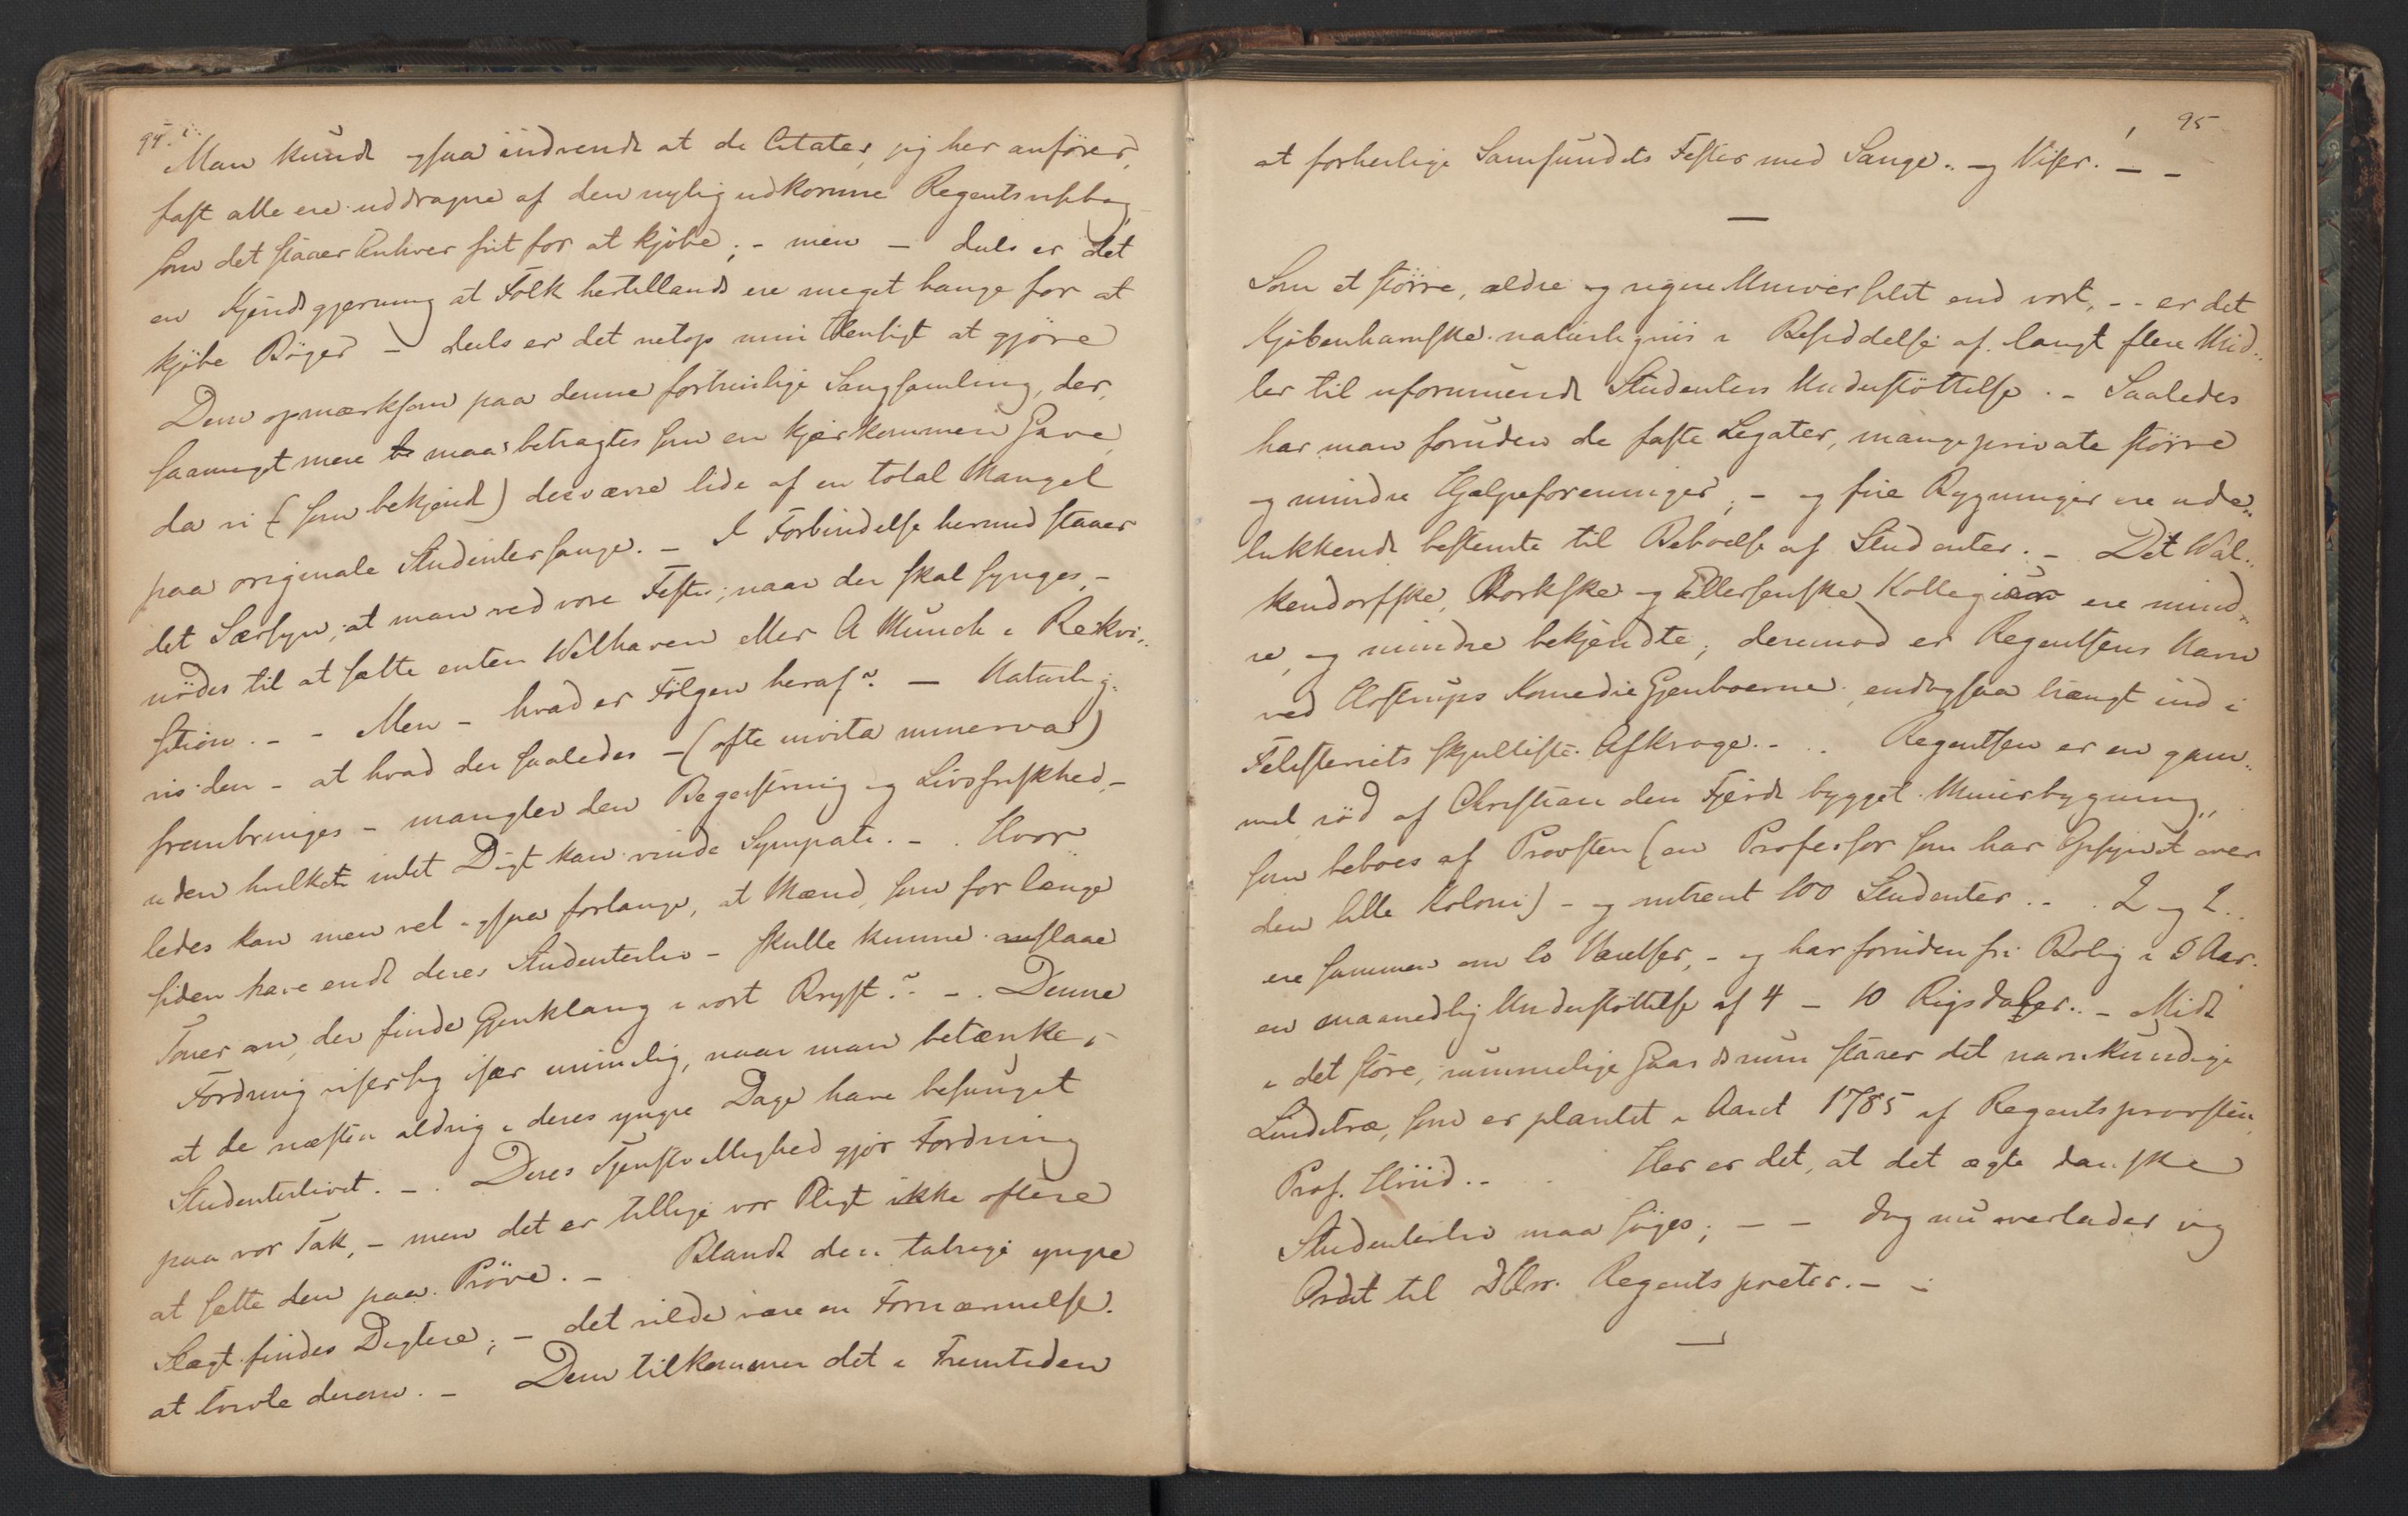 94.
Man kunde ogsaa indvende at de Citater, jeg her anfører,
fast alle ere uddragne af den nylig udkomne Regentsvisebog,
som det staaer Enhver frit for at kjøbe; - men - dels er det
en Kjendsgjerning at Folk hertillands ere meget bange for at
kjøbe Bøger - dels er det netop min Hensigt at gjøre
Dem opmærksom paa denne fortrinlige Sangsamling, der,
saameget mere maa betragtes som en kjærkommen Gave,
da vi (som bekjendt) desværre lide af en total Mangel
paa originale Studentersange. - I Forbindelse hermed staaer
det Særsyn, at man ved vore Fester, naar der skal synges, -
nødes til at sætte enten Welhaven eller A Munch i Rekvi-
sition. - - Men - hvad er Følgen heraf? - Naturlig-
vis den - at hvad der saaledes - (ofte invita minerva)
frembringes - mangler den Begeistring og Livsfriskhed, -
uden hvilket intet Digt kan vinde Sympati. - . Hvor
ledes kan men vel ogsaa forlange, at Mænd, som for længe
siden have endt deres Studenterliv - skulle kunne anslaae
Toner an, der finde Gjenklang i vort Bryst? - . Denne
Fordring viser sig især urimelig, naar man betænker,
at de næsten aldrig i deres yngre Dage have besunget
Studenterlivet. - . Deres Tjenstvillighed gjør Fordring
paa vor Tak, - men det er tillige vor Pligt ikke oftere
at sætte den paa Prøve. - Blandt den talrige yngre
Slægt findes Digtere; - det vilde være en Fornærmelse.
at tvivle derom. - Dem tilkommer det i Fremtiden
95
at forherlige Samfundets Fester med Sange.. og Viser. ! - -
-
Som et større, ældre og rigere Universitet end vort, - - er det
Kjøbenhavnske naturligvis i Besiddelse af langt flere Mid-
ler til uformuende Studenters Understøttelse. - Saaledes
har man foruden de faste Legater, mange private større
og mindre Hjælpeforeninger; - og fire Bygninger ere ude-
lukkende bestemte til Beboelse af Studenter. - Det Wal-
kendorffske, Borkske og Ellersenske Kollegium ere mind-
re, og mindre bekjendte; derimod er Regentsens Navn
ved Hostrups Komedie Gjenboerne, endogsaa trængt ind i
Filisteriets skjultiste Afkroge. - . . Regentsen er en gam-
mel rød af Christian den Fjerde bygget Muurbygning,
som beboes af Provsten (en Professor som har Opsynet over
den lille Koloni) - og omtrent 100 Studenter. . - . 2 og 2..
ere sammen om to Værelser, - og har foruden fri Bolig i 5 Aar.
en maanedlig Understøttelse af 4 - 10 Rigsdaler. . - Midt
i det store, rummelige Gaardsrum staaer det navnkundige
Lindetræ, som er plantet i Aaret 1785 af Regentsprovsten,
Prof. Hviid. - . Her er det, at det ægte danske
Studenterliv maa søges; - - Dog nu overlader jeg
Ordet til DHrr. Regentspreter. - -
-